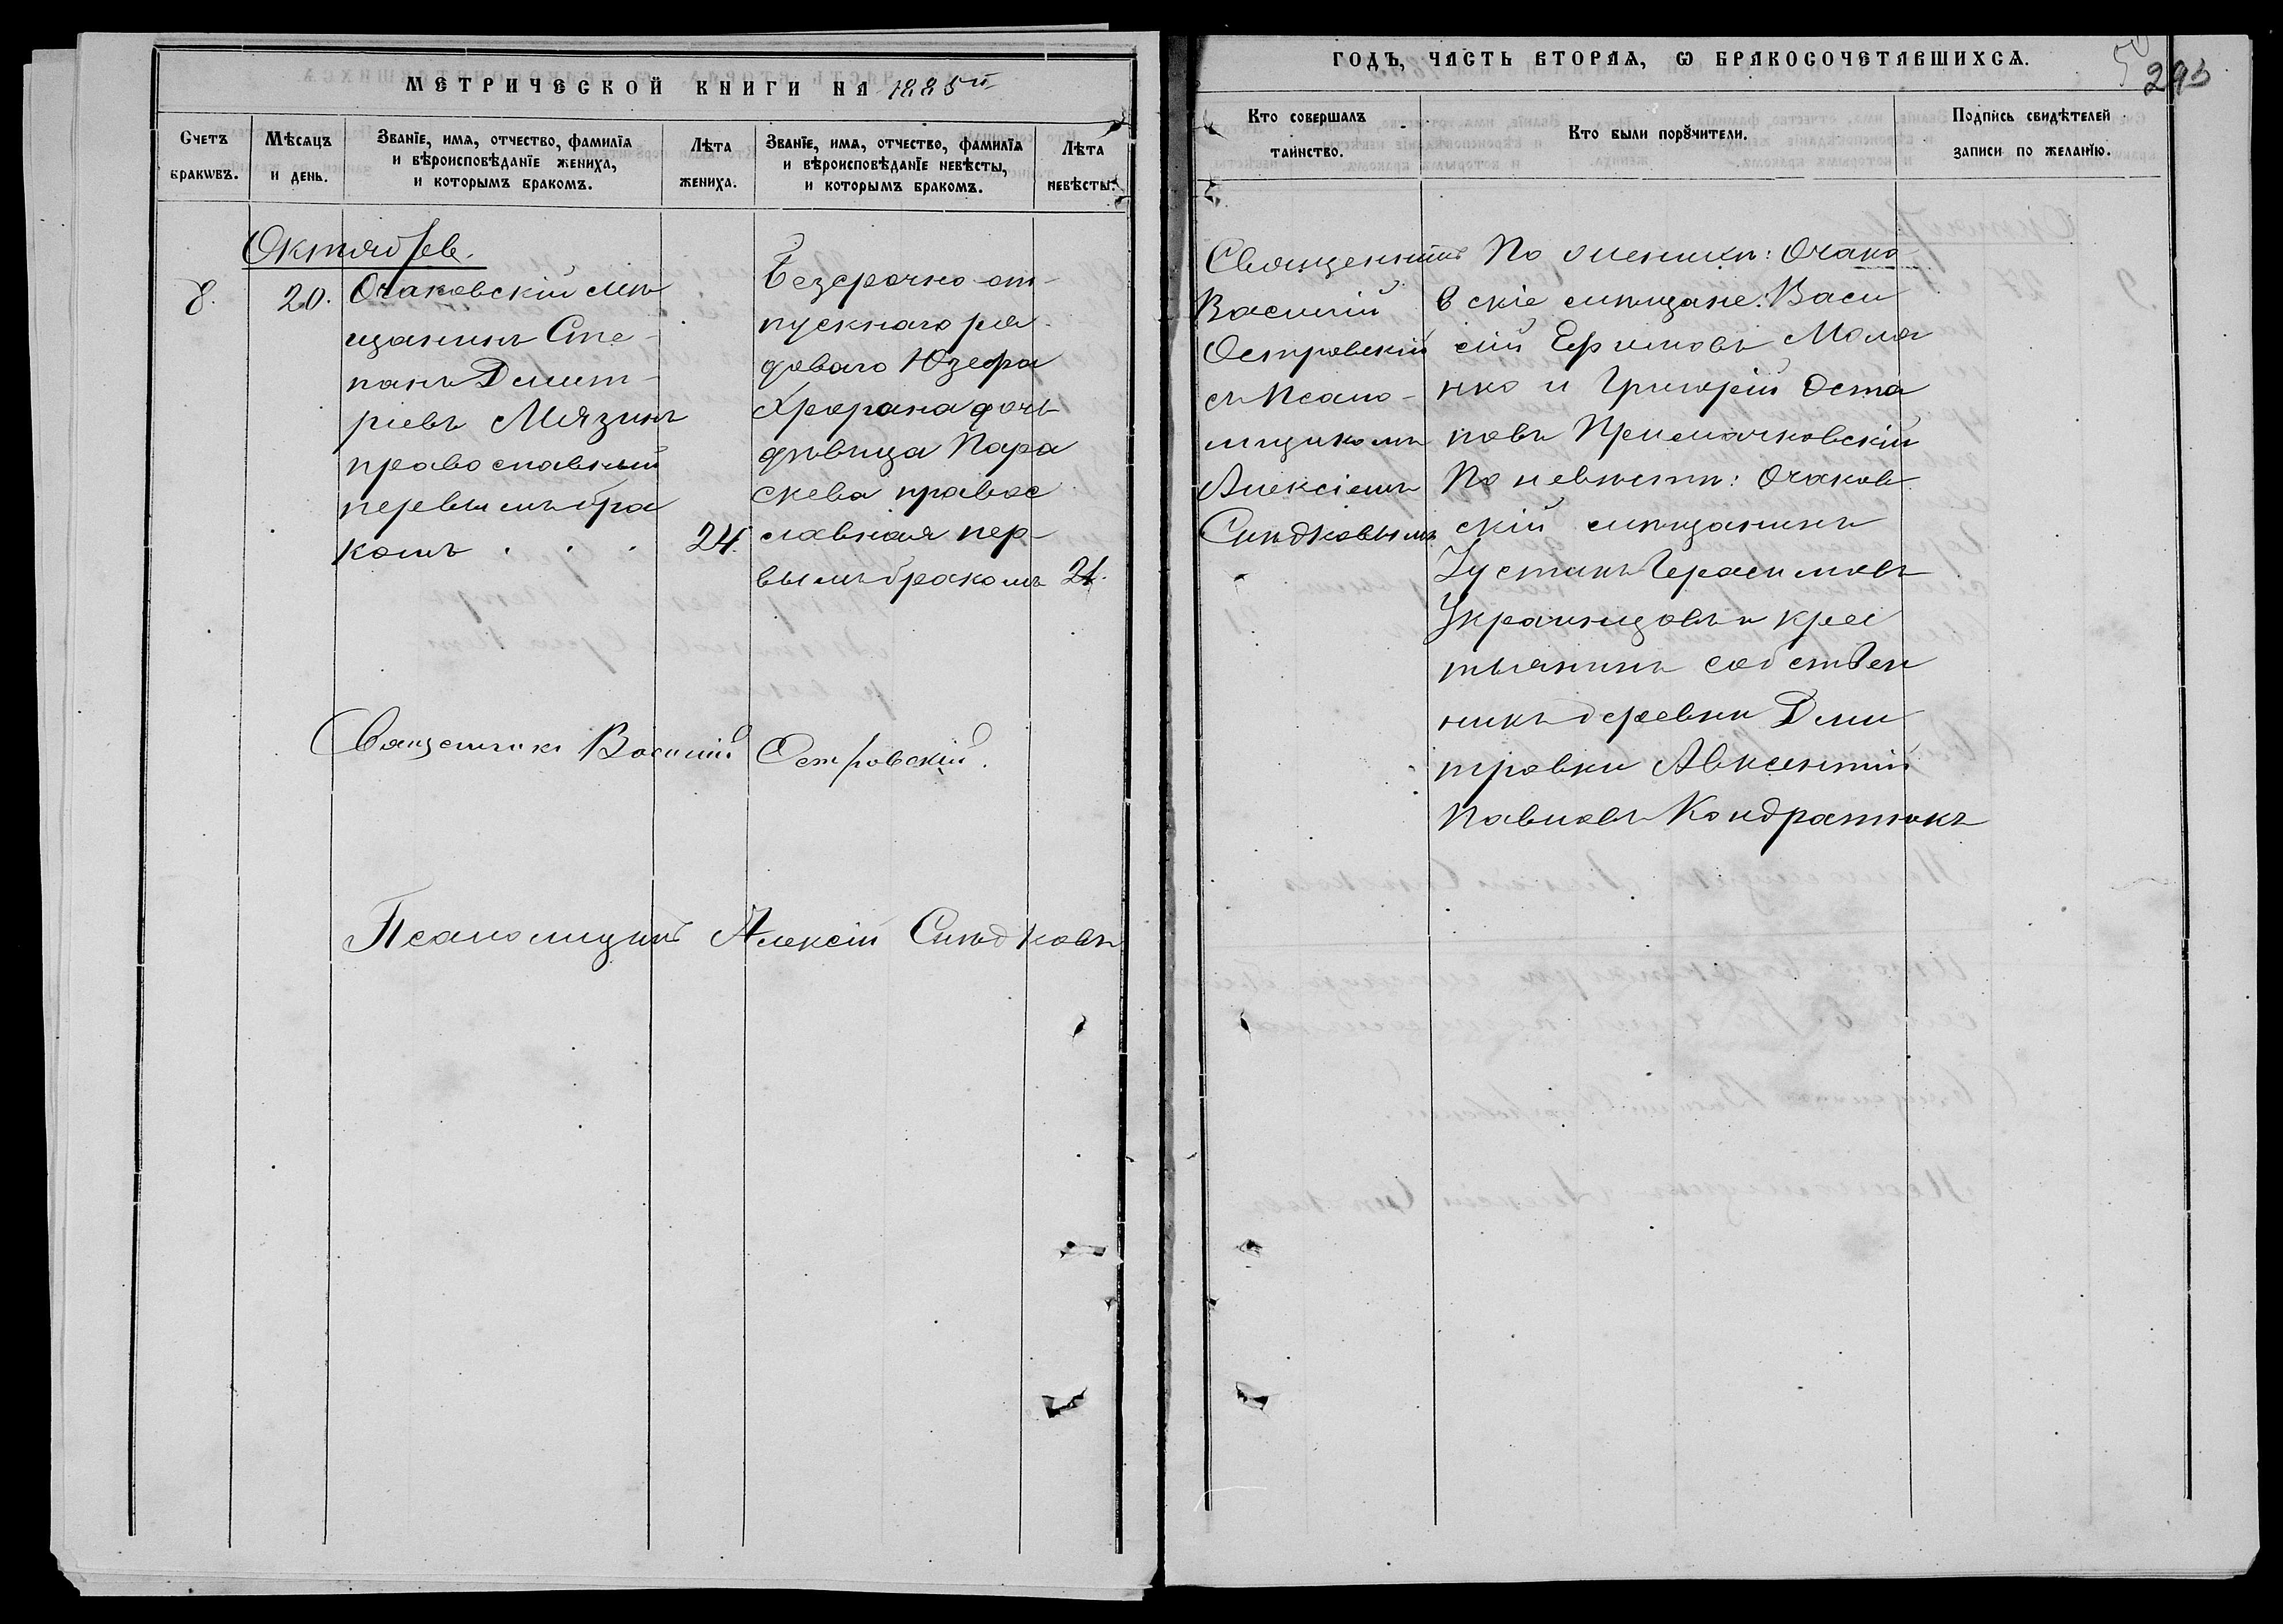 МЕТРИЧЕСКОЙ КНИГИ НА 1885й
Счетъ браковъ.
Мѣсяцъ и день.
Званїе, имя, отчество, фамилїя
и вѣроисповѣданїе жениха,
и которымъ бракомъ.
Лѣта
жениха.
Званїе, имя, отчество, фамилїя
и вѣроисповѣданїе невѣсты,
и которымъ бракомъ.
Лѣта
невѣсты.
Октябрь.
8.
20.
Очаковскій мѣ
щанинъ Сте-
панъ Дмит-
ріевъ Мязинъ
православный
первымъ бра
комъ . . . 24.
Безсрочно-от-
пускнаго ря-
доваго Юзефа
дочь
дѣвица Пара
скева правос
славная пер-
вымъ бракомъ 21.
Священникъ Василій Островскій.
Псаломщикъ Алексій Снѣдковъ
ГОДЪ, ЧАСТЬ ВТОРАЯ, Ѡ БРАКОСОЧЕТАВШИХСЯ.
50
293
Кто совершалъ
таинство.
Кто были порꙋчители.
Подпись свидѣтелей
записи по желанїю.
Священникъ
Василій
Островскій
съ псало-
мщикомъ
Алексіемъ
Снѣдковымъ
По женихѣ: Очако-
вскіе мѣщане: Васи
лій Ефимовъ Моля
нко и Григорій Оста
повъ
По невѣстѣ: Очаков
скій мѣщанинъ
Іустинъ Герасимовъ
Украинцовъ и крес
тьянинъ собствен
никъ деревни Дми
тровки Авксентій
Павловъ Кондратюкъ